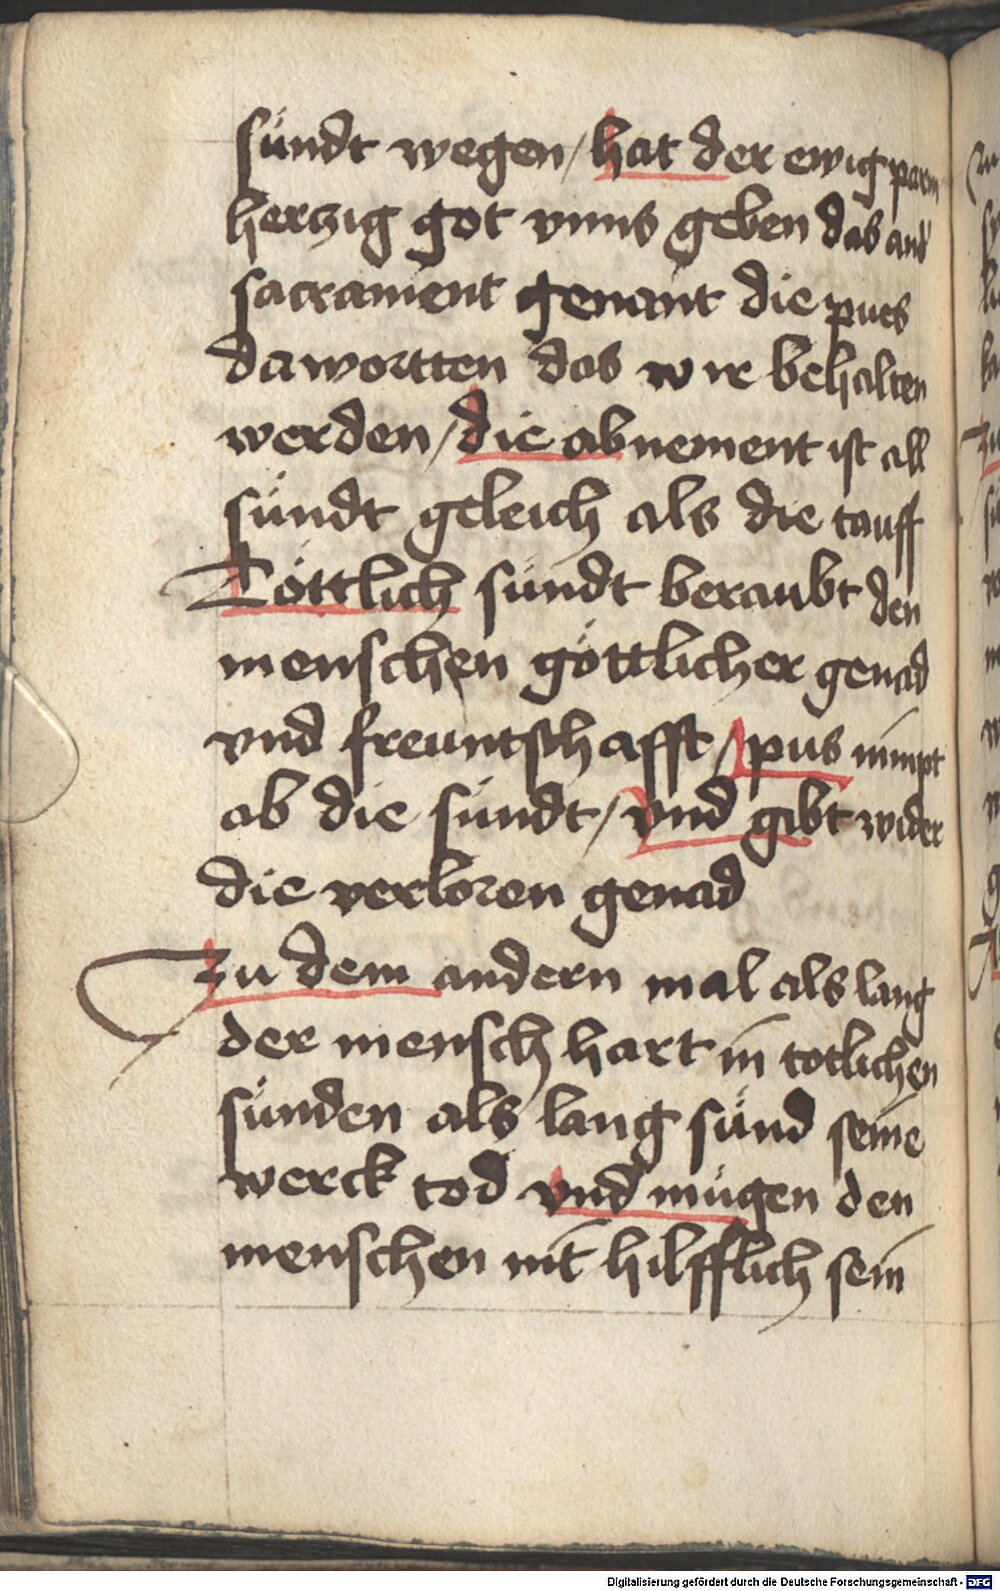 sündt wegen / hat der ewig parm
herzig got vnns geben das and
sacrament genant die pues
da wortten das wir behalten
werden / die abnement ist all
sündt geleich als die tauff
Töttlich sündt beraubt den
menschen göttlicher genad
vnd freuntschafft / pus nimpt
ab die sündt / vnd gibt wider
die verloren genad
Zu dem andern mal als lang
der mensch hart in totlichen
sünden als lang sünd seine
werck tod vnd mügen den
menschen nit hilfflich sein
Digitalisierung gefördert durch die Deutsche Forschungsgemeinschaft - DFG